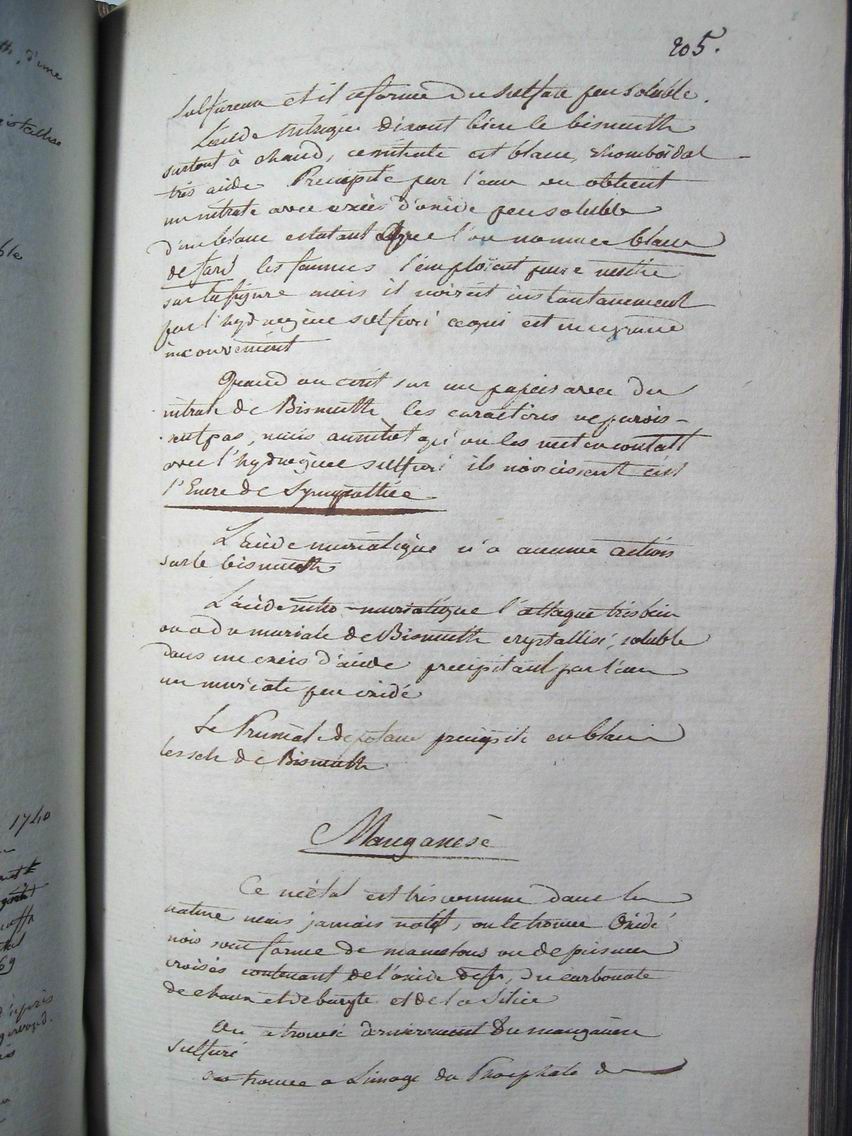 th, d'une
cristallise
ble
1740
69
205.
sulfureux et il se forme du sulfate peu soluble.
L'acide nitrique dissout bien le bismuth
surtout à chaud, ce nitrate est blanc, rhomboïdal
très acide. Precipité par l'eau on obtient
un nitrate avec excès d'oxide peu soluble
d'un blanc eclatant que l'on nomme blanc
de fard les femmes l'emploient pour mettre
sur la figure mais il noircit instantanement
par l'hydrogène sulfuré ce qui est un grand
inconvénient
Quand on ecrit sur un papier avec du
nitrate de Bismuth les caractères ne parois-
sent pas, mais aussitot qu'on les met en contact
avec l'hydrogène sulfuré ils noircissent c'est
l'Encre de Sympathie
L'acide muriatique n'a aucune action
sur le bismuth
L'acide nitro-muriatique l'attaque très bien
on a du muriate de Bismuth crystallisé, soluble
dans un excès d'acide precipitant par l'eau
un muriate peu oxidé
Le Prussiate de potasse precipite en blanc
les sels de Bismuth
Manganèse
Ce métal est très commun dans la
nature mais jamais natif, on le trouve Oxidé
noir sous forme de mamelons ou de prismes
croisés contenant de l'oxide de fer, du carbonate
de chaux et de baryte et de la Silice
On a trouvé dernierement Du manganèse
sulfuré
on trouve a Limoge du Phosphate de